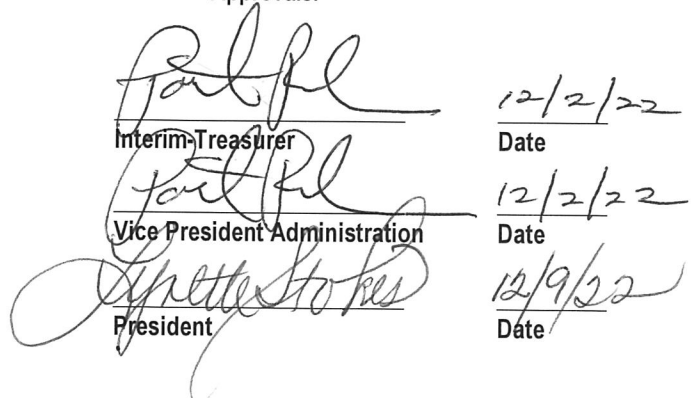 12/2/22
Interim-Treasurer Date
12/2/22
Vice President Administration Date
Lynette Stokes 12/9/22
President Date